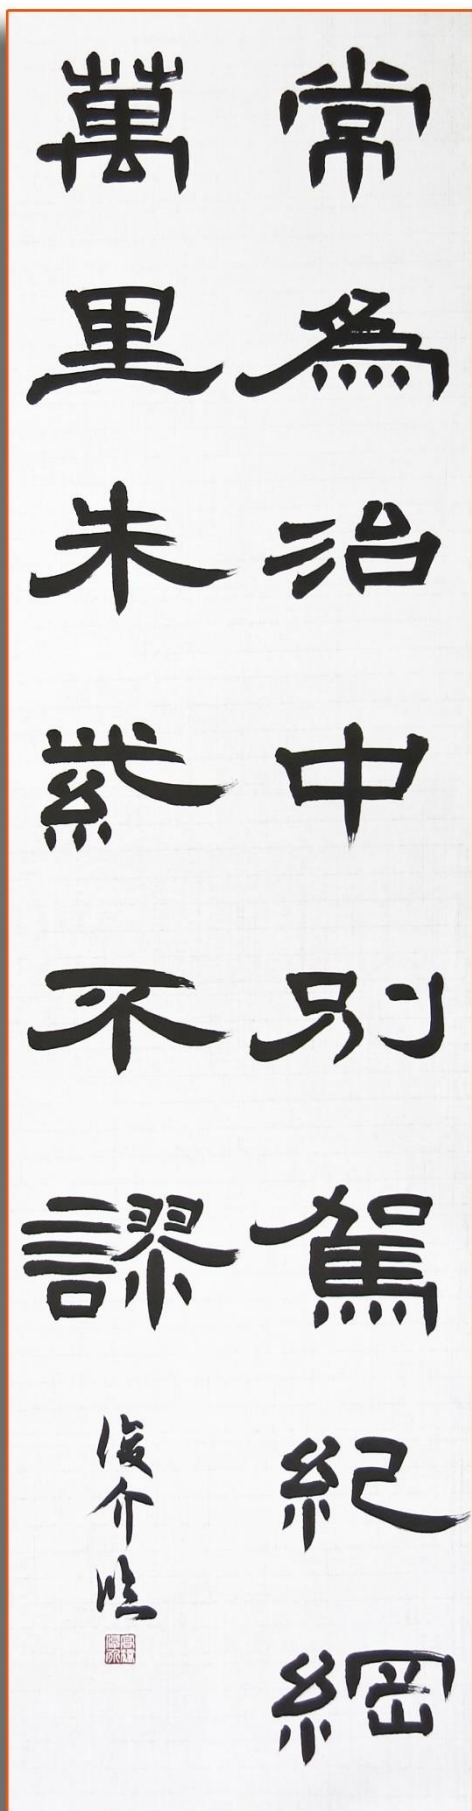 常為治中別駕紀綱
萬里朱紫不謬
俊介臨